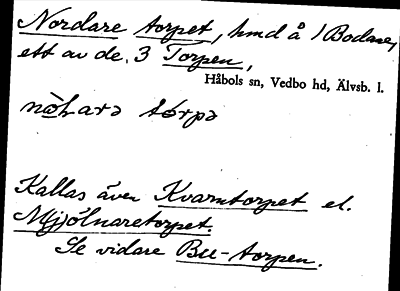 Nordare torpet, hmd å 1 Bodane,
ett av de 3 Torpen,
Håbols sn, Vedbo hd, Älvsb. l.
Kallas även Kvarntorpet el.
Mjölnaretorpet.
Se vidare Bu-torpen.